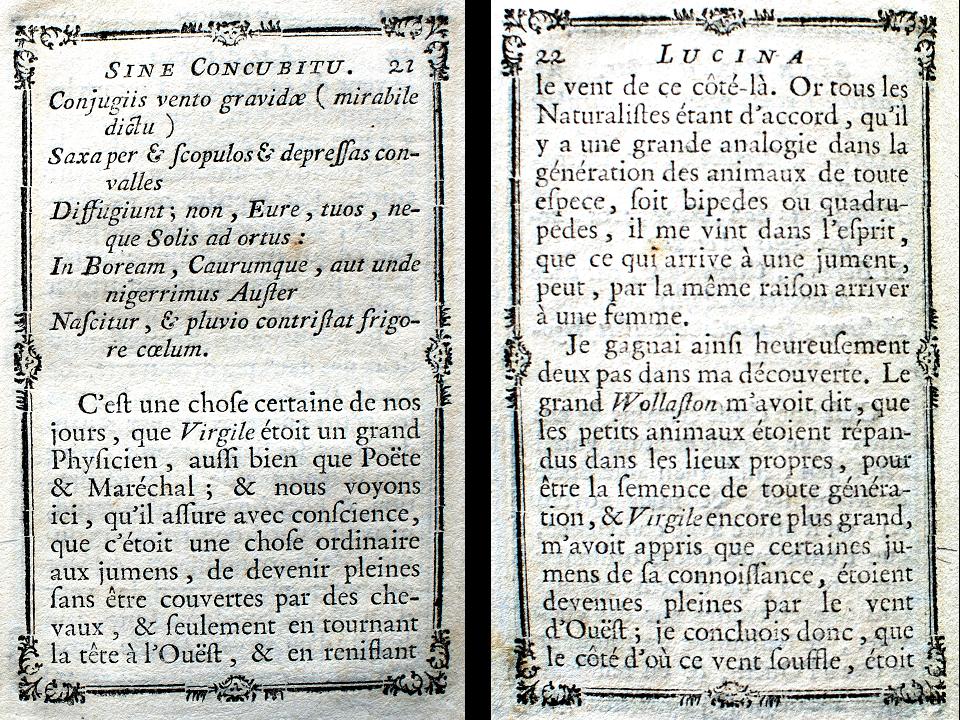 SINE CONCUBITU. 21
Conjugiis vento gravidæ ( mirabile
dictu )
Saxa per & ſcopulos & depreſſas con-
valles
Diffugiunt ; non , Eure , tuos , ne-
que Solis ad ortus :
In Boream , Caurumque , aut unde
nigerrimus Auſter
Naſcitur , & pluvio contriſtat frigo-
re cœlum.
C'eſt une choſe certaine de nos
jours , que Virgile étoit un grand
Phyſicien , auſſi bien que Poëte
& Maréchal ; & nous voyons
ici , qu'il aſſure avec conſcience,
que c'étoit une choſe ordinaire
aux jumens , de devenir pleines
ſans être couvertes par des che-
vaux , & ſeulement en tournant
la tête à l'Ouëſt , & en reniflant
22 LUCINA
le vent de ce côté-là. Or tous les
Naturaliſtes étant d'accord , qu'il
y a une grande analogie dans la
génération des animaux de toute
eſpece, ſoit bipedes ou quadru-
pedes , il me vint dans l'eſprit,
que ce qui arrive à une jument,
peut , par la même raiſon arriver
à une femme.
Je gagnai ainſi heureuſement
deux pas dans ma découverte. Le
grand Wollaſton m'avoit dit, que
les petits animaux étoient répan-
dus dans les lieux propres, pour
être la ſemence de toute généra-
tion , & Virgile encore plus grand,
m'avoit appris que certaines ju-
mens de ſa connoiſſance, étoient
devenues pleines par le vent
d'Ouëſt ; je concluois donc, que
le côté d'où ce vent ſouffle, étoit